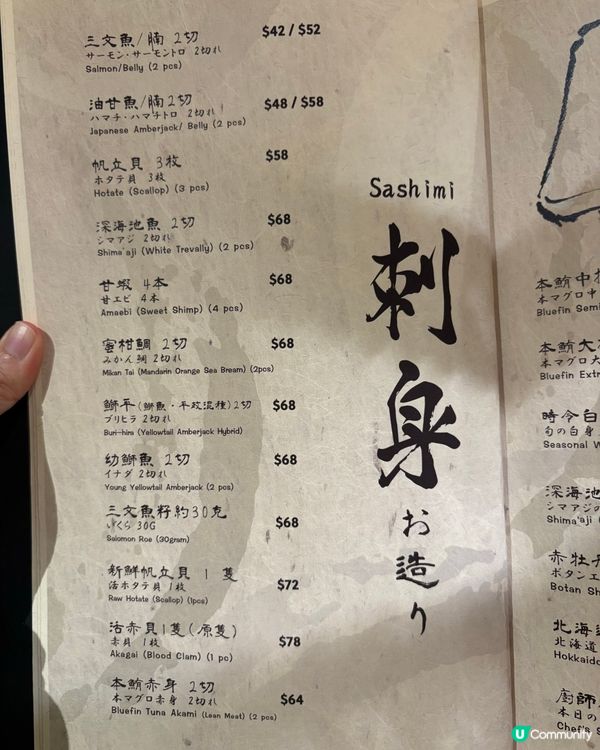 三文魚/腩 2切
サーモン・サーモントロ 2切れ
Salmon/Belly (2 pcs)
$42 / $52
油甘魚/腩 2切
ハマチ・ハマチトロ 2切れ
Japanese Amberjack/ Belly (2 pcs)
$48 / $58
帆立貝 3枚
ホタテ貝 3枚
Hotate (Scallop) (3 pcs)
$58
深海池魚 2切
シマアジ 2切れ
Shima'aji (White Trevally) (2 pcs)
$68
甘蝦 4本
甘エビ 4本
Amaebi (Sweet Shimp) (4 pcs)
$68
蜜柑鯛 2切
みかん鯛 2切れ
Mikan Tai (Mandarin Orange Sea Bream) (2pcs)
$68
鰤平(鰤魚・平政混種)2切
ブリヒラ 2切れ
Buri-hira (Yellowtail Amberjack Hybrid)
$68
幼鰤魚 2切
イナダ 2切れ
Young Yellowtail Amberjack (2 pcs)
$68
三文魚籽約30克
いくら 30G
Salomon Roe (30gram)
$68
新鮮帆立貝 1隻
活ホタテ貝 1枚
Raw Hotate (Scallop) (1pcs)
$72
活赤貝1隻(原隻)
赤貝 1枚
Akagai (Blood Clam) (1 pc)
$78
本鮪赤身 2切
本マグロ赤身 2切れ
Bluefin Tuna Akami (Lean Meat) (2 pcs)
$64
Sashimi
刺身
お造り
本鮪中
本マグロ中
Bluefin Semi
本鮪大
本マグロ大
Bluefin Extr
時令白
旬の白身
Seasonal W
深海池
シマアジの
Shima'aji (
赤牡丹
ボタンエ
Botan Sh
北海道
北海道
Hokkaido
廚師
本日の
Chef's S
U Community